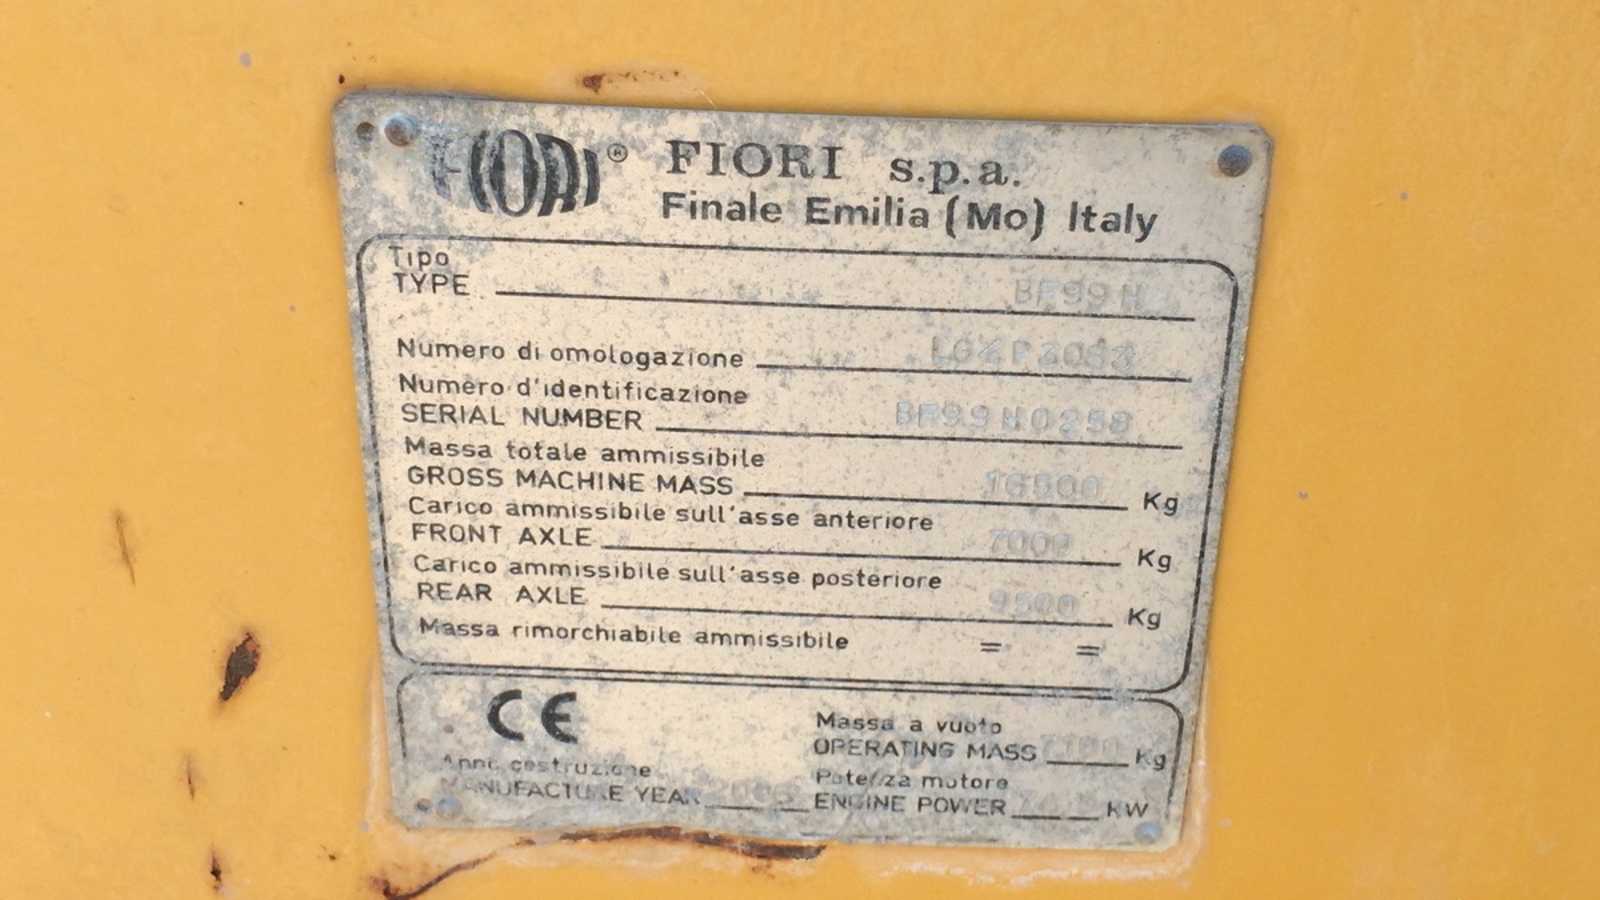 FIORI® FIORI s.p.a.
Finale Emilia (Mo) Italy
Tipo
TYPE BF99H
Numero di omologazione
Numero d'identificazione
SERIAL NUMBER BF99H0258
Massa totale ammissibile
GROSS MACHINE MASS 16500 Kg
Carico ammissibile sull'asse anteriore
FRONT AXLE 7000 Kg
Carico ammissibile sull'asse posteriore
REAR AXLE 9500 Kg
Massa rimorchiabile ammissibile = =
CE
Massa a vuoto
OPERATING MASS Kg
Anno costruzione
MANUFACTURE YEAR
Potenza motore
ENGINE POWER KW